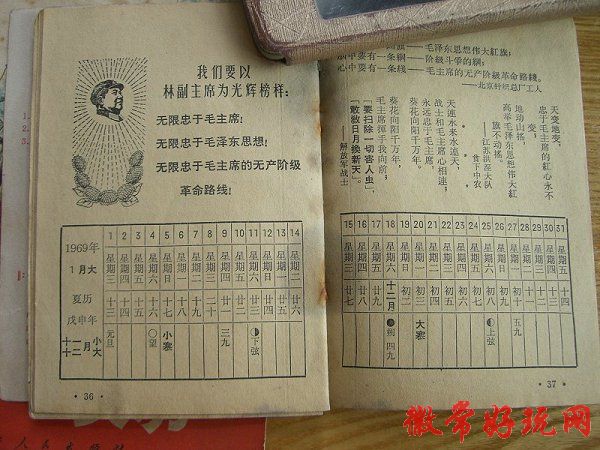 我们要以
林副主席为光辉榜样：
无限忠于毛主席！
无限忠于毛泽东思想！
无限忠于毛主席的无产阶级
革命路线！
1969年
1月大
夏历
戊申年
十一月小
十二月大
1 2 3 4 5 6 7 8 9 10 11 12 13 14
星期三 星期四 星期五 星期六 星期日 星期一 星期二 星期三 星期四 星期五 星期六 星期日 星期一 星期二
十三 十四 十五 十六 十七 十八 十九 二十 廿一 廿二 廿三 廿四 廿五 廿六
元旦 ○望 小寒 三九 下弦
·36·
毛泽东思想伟大红旗；
中要有一条纲——阶级斗争的纲；
心中要有一条线——毛主席的无产阶级革命路线。
——北京针织总厂工人
天变地变，
忠于毛主席的红心永不
变。
地动山摇，
高举毛泽东思想伟大红
旗不动摇。
——江苏洪泽大队
贫下中农
天连水来水连天，
战士和毛主席心相连；
永远忠于毛主席，
葵花向阳千万年。
葵花向阳千万年，
毛主席挥手我向前；
「要扫除一切害人虫」，
「敢教日月换新天」。
——解放军战士
15 16 17 18 19 20 21 22 23 24 25 26 27 28 29 30 31
星期三 星期四 星期五 星期六 星期日 星期一 星期二 星期三 星期四 星期五 星期六 星期日 星期一 星期二 星期三 星期四 星期五
廿七 廿八 廿九 十二月 初二 初三 初四 初五 初六 初七 初八 初九 初十 十一 十二 十三 十四
朔 四九 大寒 上弦 五九
·37·
人民出版社
徽常好玩网